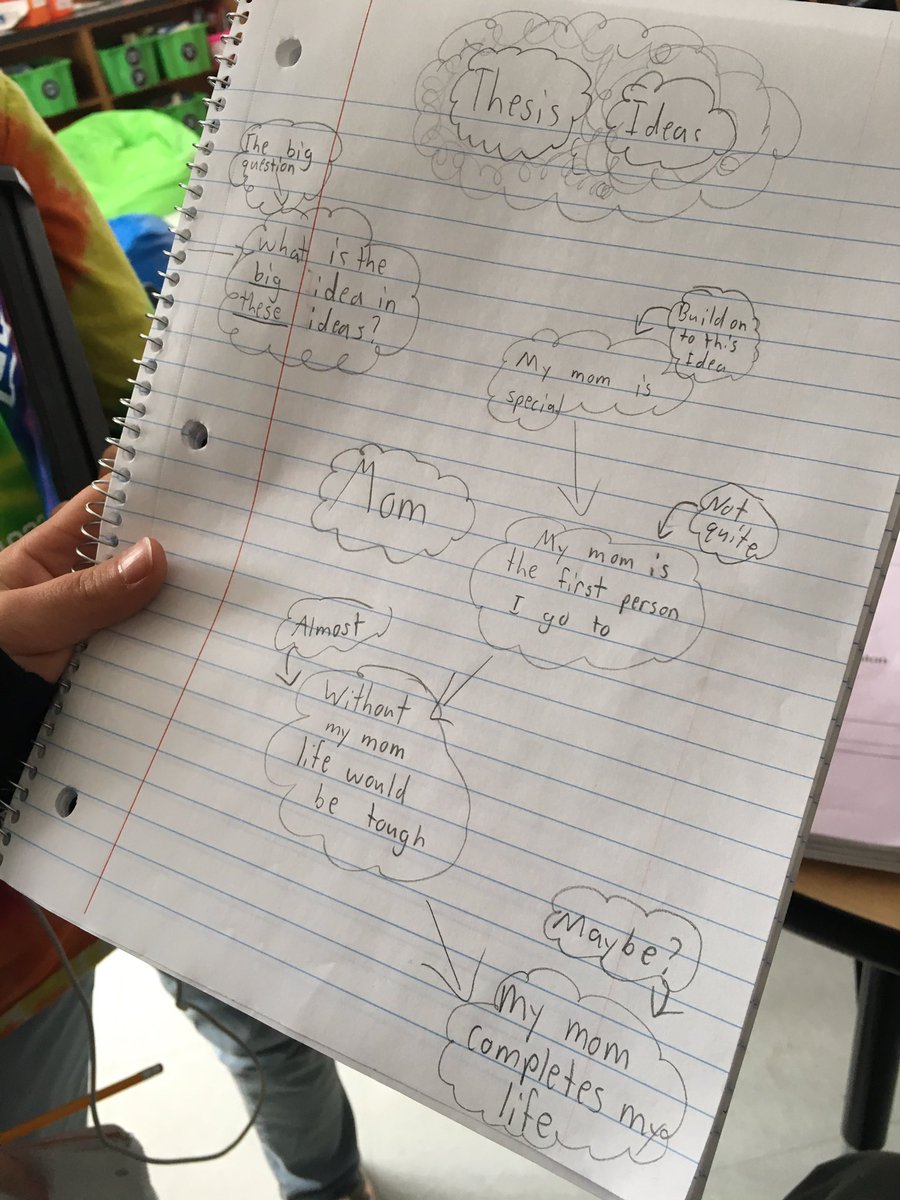 Thesis Ideas
The big
question
What is the
big idea in
these ideas?
Build on
to this
Idea
My mom is
special
Mom
Not
quite
My mom is
the first person
I go to
Almost
Without
my mom
life would
be tough
Maybe?
My mom
completes my
life